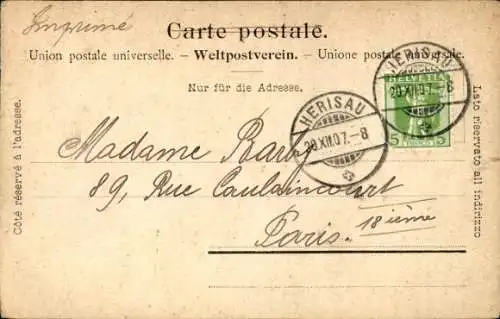 Imprimé
Carte postale.
Union postale universelle. - Weltpostverein. - Unione postale universale.
Nur für die Adresse.
Côté réservé à l'adresse.
Lato riservato all indirizzo
HELVETIA
5 FRANCO 5
HERISAU
20.XII.07.-8
HERISAU
20.XII.07.-8
Madame
89, Rue Caulaincourt
Paris. 18ième